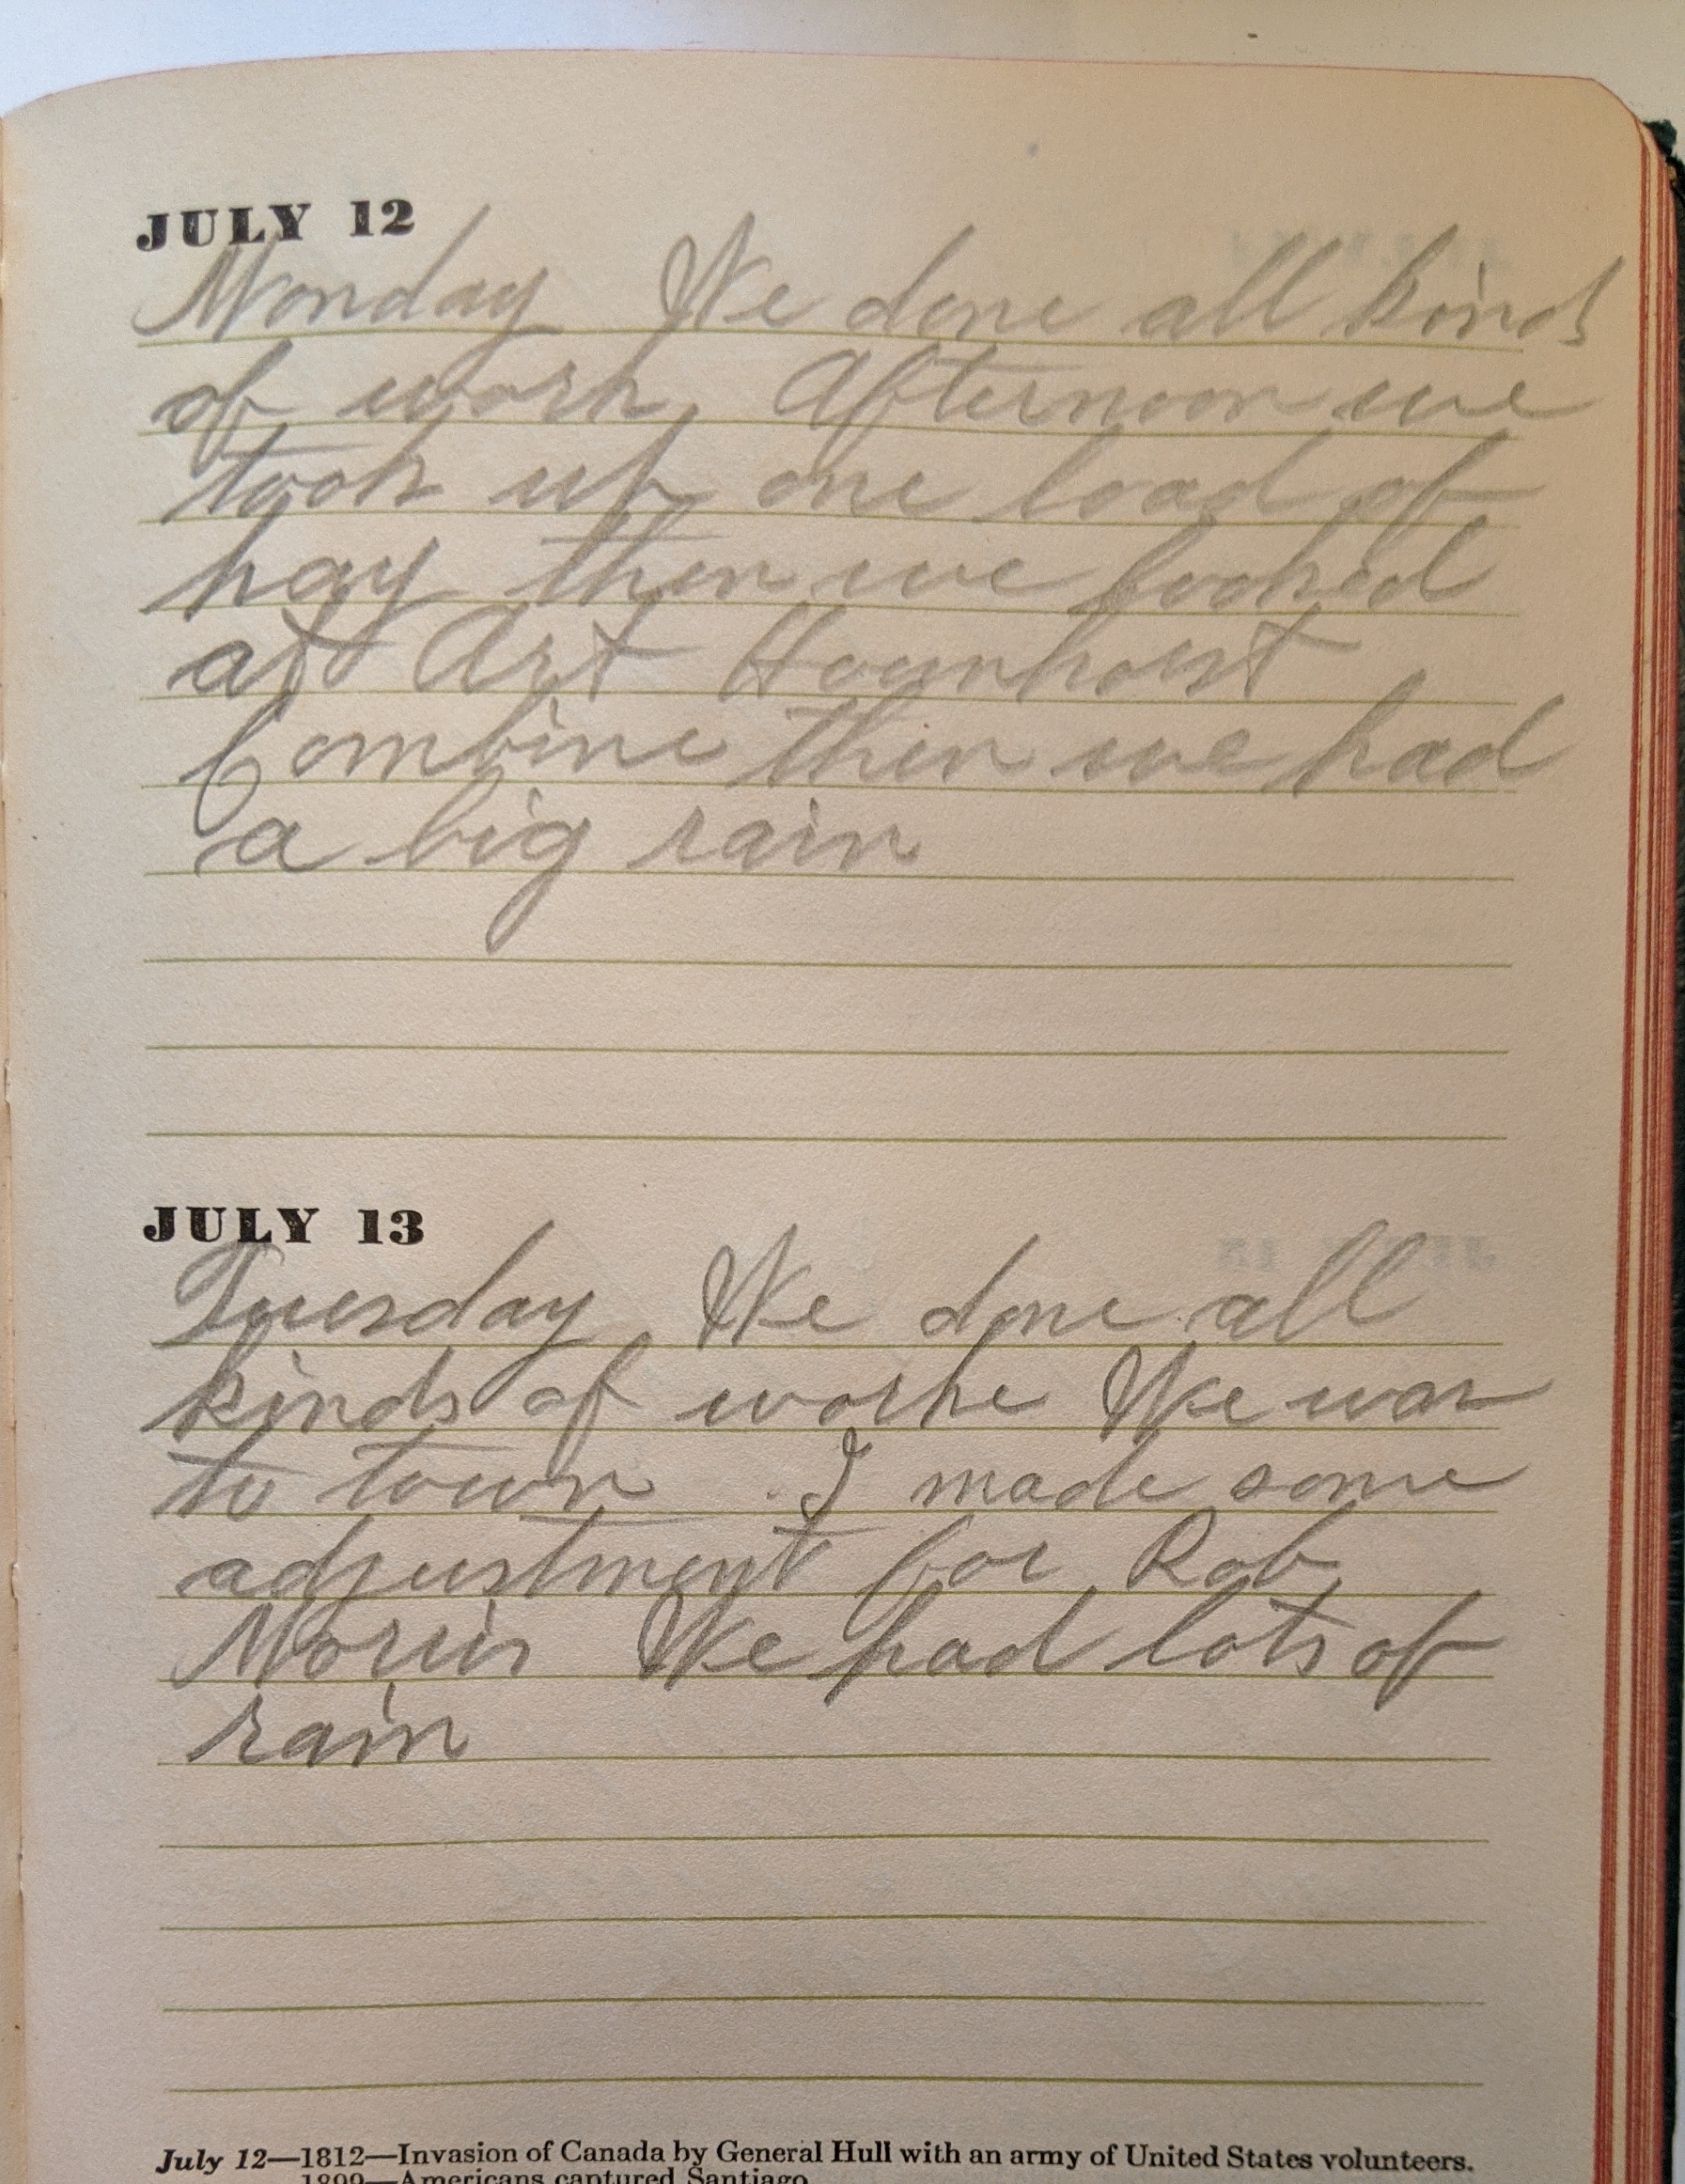 JULY 12
Monday We done all kinds
of work, Afternoon we
took up one load of
hay then we looked
at Art
Combine then we had
a big rain
JULY 13
Tuesday We done all
kinds of worke We was
to town. I made some
adjustment for Rob
Morris We had lots of
rain
July 12—1812—Invasion of Canada by General Hull with an army of United States volunteers.
1899—Americans captured Santiago.